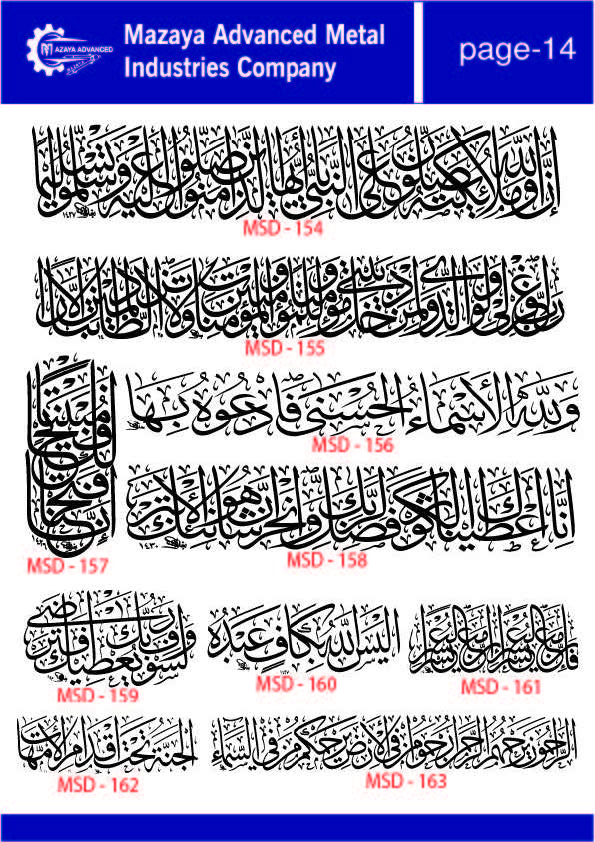 MAZAYA ADVANCED
Mazaya Advanced Metal
Industries Company
page-14
إن الله وملائكته يصلون على النبي يا أيها الذين آمنوا صلوا عليه وسلموا تسليما
١٤٢٧
MSD - 154
رب اغفر لي ولوالدي ولمن دخل بيتي مؤمنا وللمؤمنين والمؤمنات ولا تزد الظالمين إلا تبارا
MSD - 155
ولله الأسماء الحسنى فادعوه بها
MSD - 156
إنا فتحنا لك فتحا مبينا
MSD - 157
إنا أعطيناك الكوثر فصل لربك وانحر إن شانئك هو الأبتر
١٤٣٠
MSD - 158
ولسوف يعطيك ربك فترضى
MSD - 159
أليس الله بكاف عبده
MSD - 160
فإن مع العسر يسرا إن مع العسر يسرا
MSD - 161
الجنة تحت أقدام الأمهات
MSD - 162
الراحمون يرحمهم الرحمن ارحموا من في الأرض يرحمكم من في السماء
MSD - 163